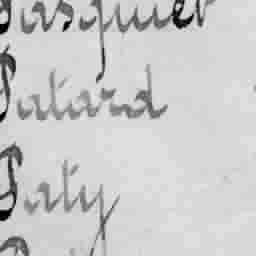 Pasquier
Patard
Paty